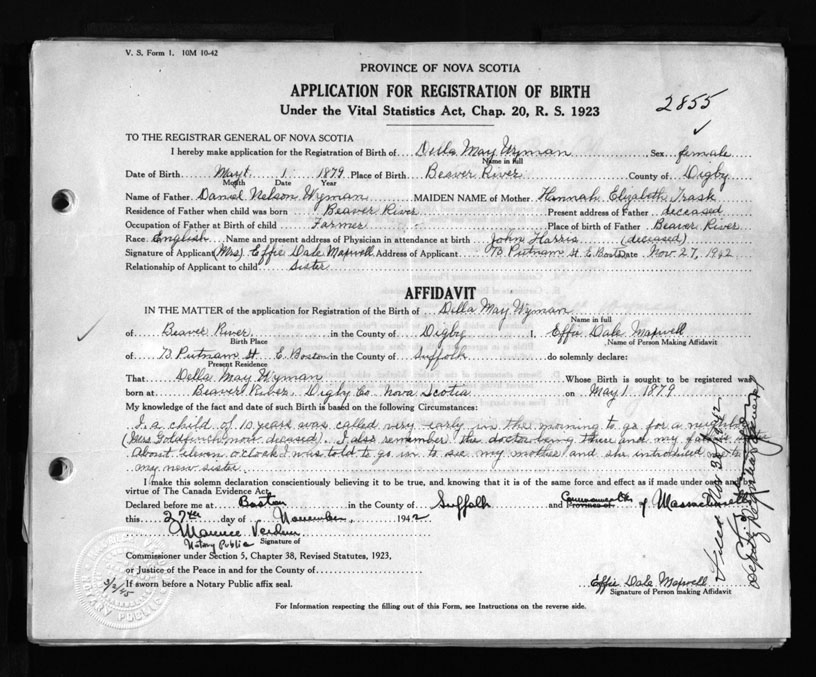 V. S. Form 1. 10M 10-42
PROVINCE OF NOVA SCOTIA
APPLICATION FOR REGISTRATION OF BIRTH
Under the Vital Statistics Act, Chap. 20, R. S. 1923
2855
TO THE REGISTRAR GENERAL OF NOVA SCOTIA
I hereby make application for the Registration of Birth of Della May Wyman, Sex female
Name in full
Date of Birth May 1 1879 Place of Birth Beaver River County of Digby
Month Date Year
Name of Father Daniel Nelson Wyman MAIDEN NAME of Mother Hannah Elizabeth Trask
Residence of Father when child was born Beaver River Present address of Father deceased
Occupation of Father at Birth of child Farmer Place of birth of Father Beaver River
Race English Name and present address of Physician in attendance at birth John Harris (deceased)
Signature of Applicant (Mrs) Effie Dale Maxwell Address of Applicant Putnam St E. Boston Date Nov 27, 1942
Relationship of Applicant to child Sister
AFFIDAVIT
IN THE MATTER of the application for Registration of the Birth of Della May Wyman
Name in full
of Beaver River in the County of Digby I, Effie Dale Maxwell
Birth Place Name of Person Making Affidavit
of Putnam St E. Boston in the County of Suffolk do solemnly declare:
Present Residence
That Della May Wyman Whose Birth is sought to be registered was
born at Beaver River Digby Co Nova Scotia on May 1 1879
My knowledge of the fact and date of such Birth is based on the following Circumstances:
I a child of 10 years was called very early in the morning to go for a neighbor
(Mrs Goldfinch now deceased). I also remember the doctor being there and my father
About eleven o'clock I was told to go in to see my mother and she introduced me to
my new sister.
I make this solemn declaration conscientiously believing it to be true, and knowing that it is of the same force and effect as if made under oath and by
virtue of The Canada Evidence Act.
Declared before me at Boston in the County of Suffolk and Commonwealth Province of Massachusetts
this 27th day of November, 1942
Maurice
Notary Public Signature of
Commissioner under Section 5, Chapter 38, Revised Statutes, 1923,
or Justice of the Peace in and for the County of
If sworn before a Notary Public affix seal.
3/2/45
NOTARY PUBLIC
Effie Dale Maxwell
Signature of Person making Affidavit
For Information respecting the filling out of this Form, see Instructions on the reverse side.
Filed Nov 30 1942
Deputy Registrar General